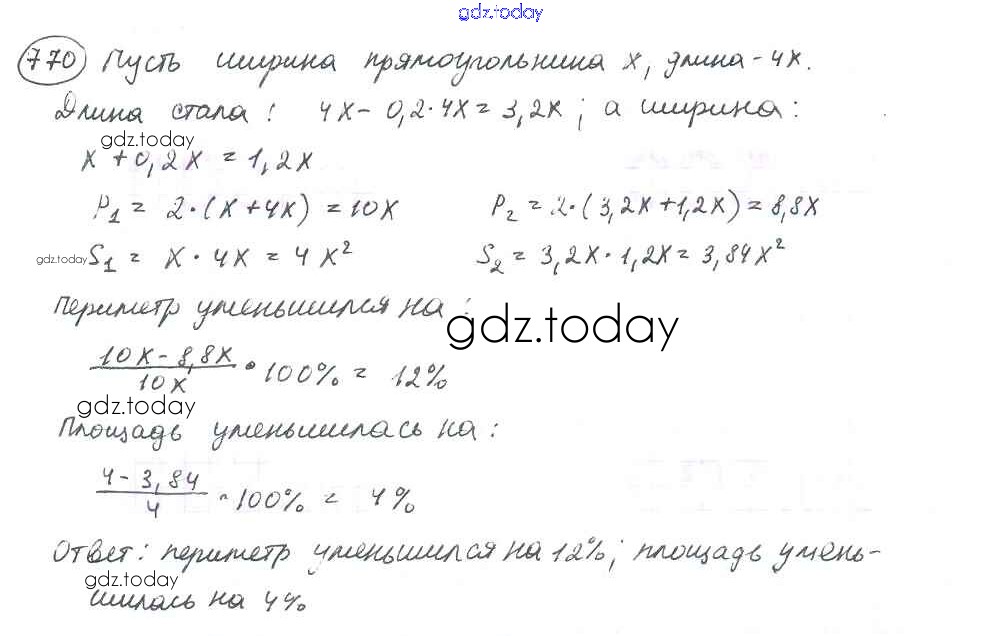 gdz.today
770 Пусть ширина прямоугольника x, длина - 4x.
Длина стала: 4x - 0,2·4x = 3,2x; а ширина:
gdz.today
x + 0,2x = 1,2x
P₁ = 2·(x+4x) = 10x P₂ = 2·(3,2x+1,2x) = 8,8x
gdz.today S₁ = x · 4x = 4x² S₂ = 3,2x·1,2x = 3,84x²
Периметр уменьшился на:
gdz.today
(10x - 8,8x)/10x · 100% = 12%
gdz.today
Площадь уменьшилась на:
(4 - 3,84)/4 · 100% = 4%
Ответ: периметр уменьшился на 12%; площадь умень-
gdz.today
шилась на 4%